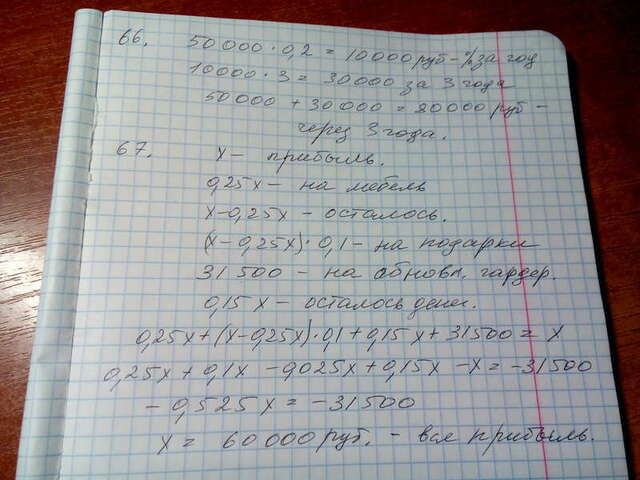 66. 50 000 · 0,2 = 10000 руб - % за год
10000 · 3 = 30000 за 3 года
50000 + 30000 = 80000 руб -
через 3 года.
67. x - прибыль.
0,25x - на мебель
x-0,25x - осталось.
(x-0,25x) · 0,1 - на подарки
31 500 - на обновл. гардер.
0,15x - осталось денег.
0,25x + (x-0,25x) · 0,1 + 0,15x + 31500 = x
0,25x + 0,1x - 0,025x + 0,15x - x = -31500
- 0,525x = -31500
x = 60000 руб. - вся прибыль.